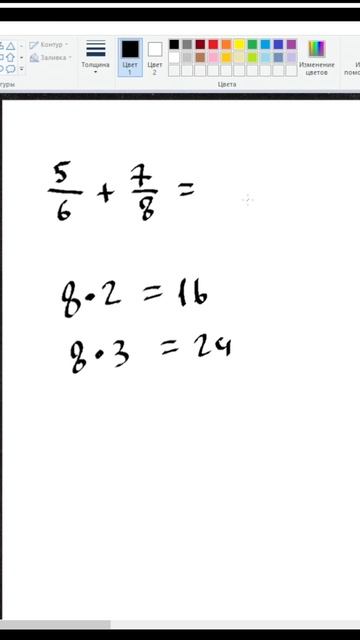 Контур
Заливка
гуры
Толщина
Цвет 1
Цвет 2
Изменение цветов
Цвета
5/6 + 7/8 =
8 · 2 = 16
8 · 3 = 24